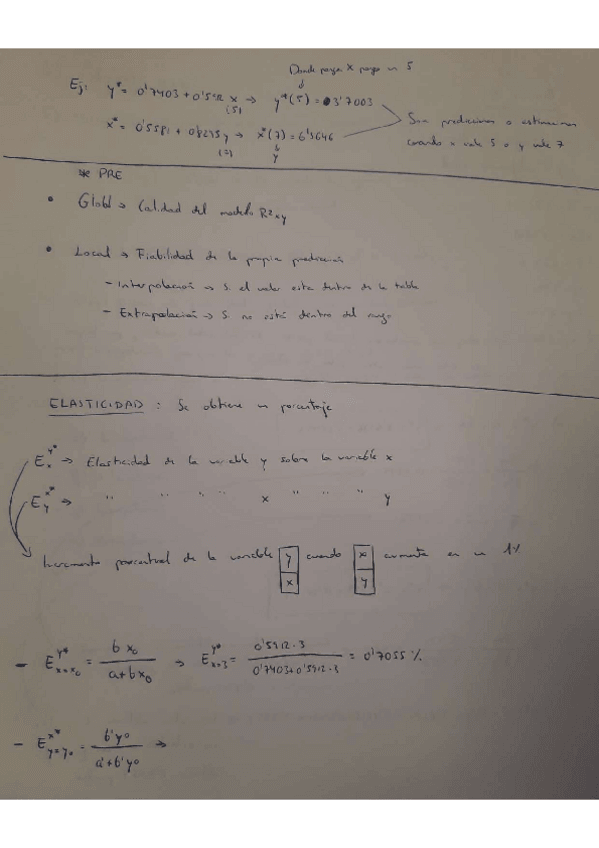 Donde ponga x pongo un 5
Ej: y* = 0'7403 + 0'592 x → y*(5) = 3'7003
(5)
Son predicciones o estimaciones
x* = 0'5581 + 0'8295 y → x*(7) = 6'3646
cuando x vale 5 o y vale 7
(7)
y
* PRE
• Global → Calidad del modelo R²xy
• Local → Fiabilidad de la propia predicción
- Interpolación → Si el valor esta dentro de la tabla
- Extrapolación → Si no está dentro del rango
ELASTICIDAD : Se obtiene un porcentaje
E_x^y* → Elasticidad de la variable y sobre la variable x
E_y^x* → " " " " x " " " y
Incremento porcentual de la variable y cuando x aumenta en un 1%
x y
- E_x=x0^y* = b x0 / a + b x0 → E_x=3^y* = 0'5912 · 3 / 0'7403 + 0'5912 · 3 = 0'7055 %
- E_y=y0^x* = b' y0 / a' + b' y0 →